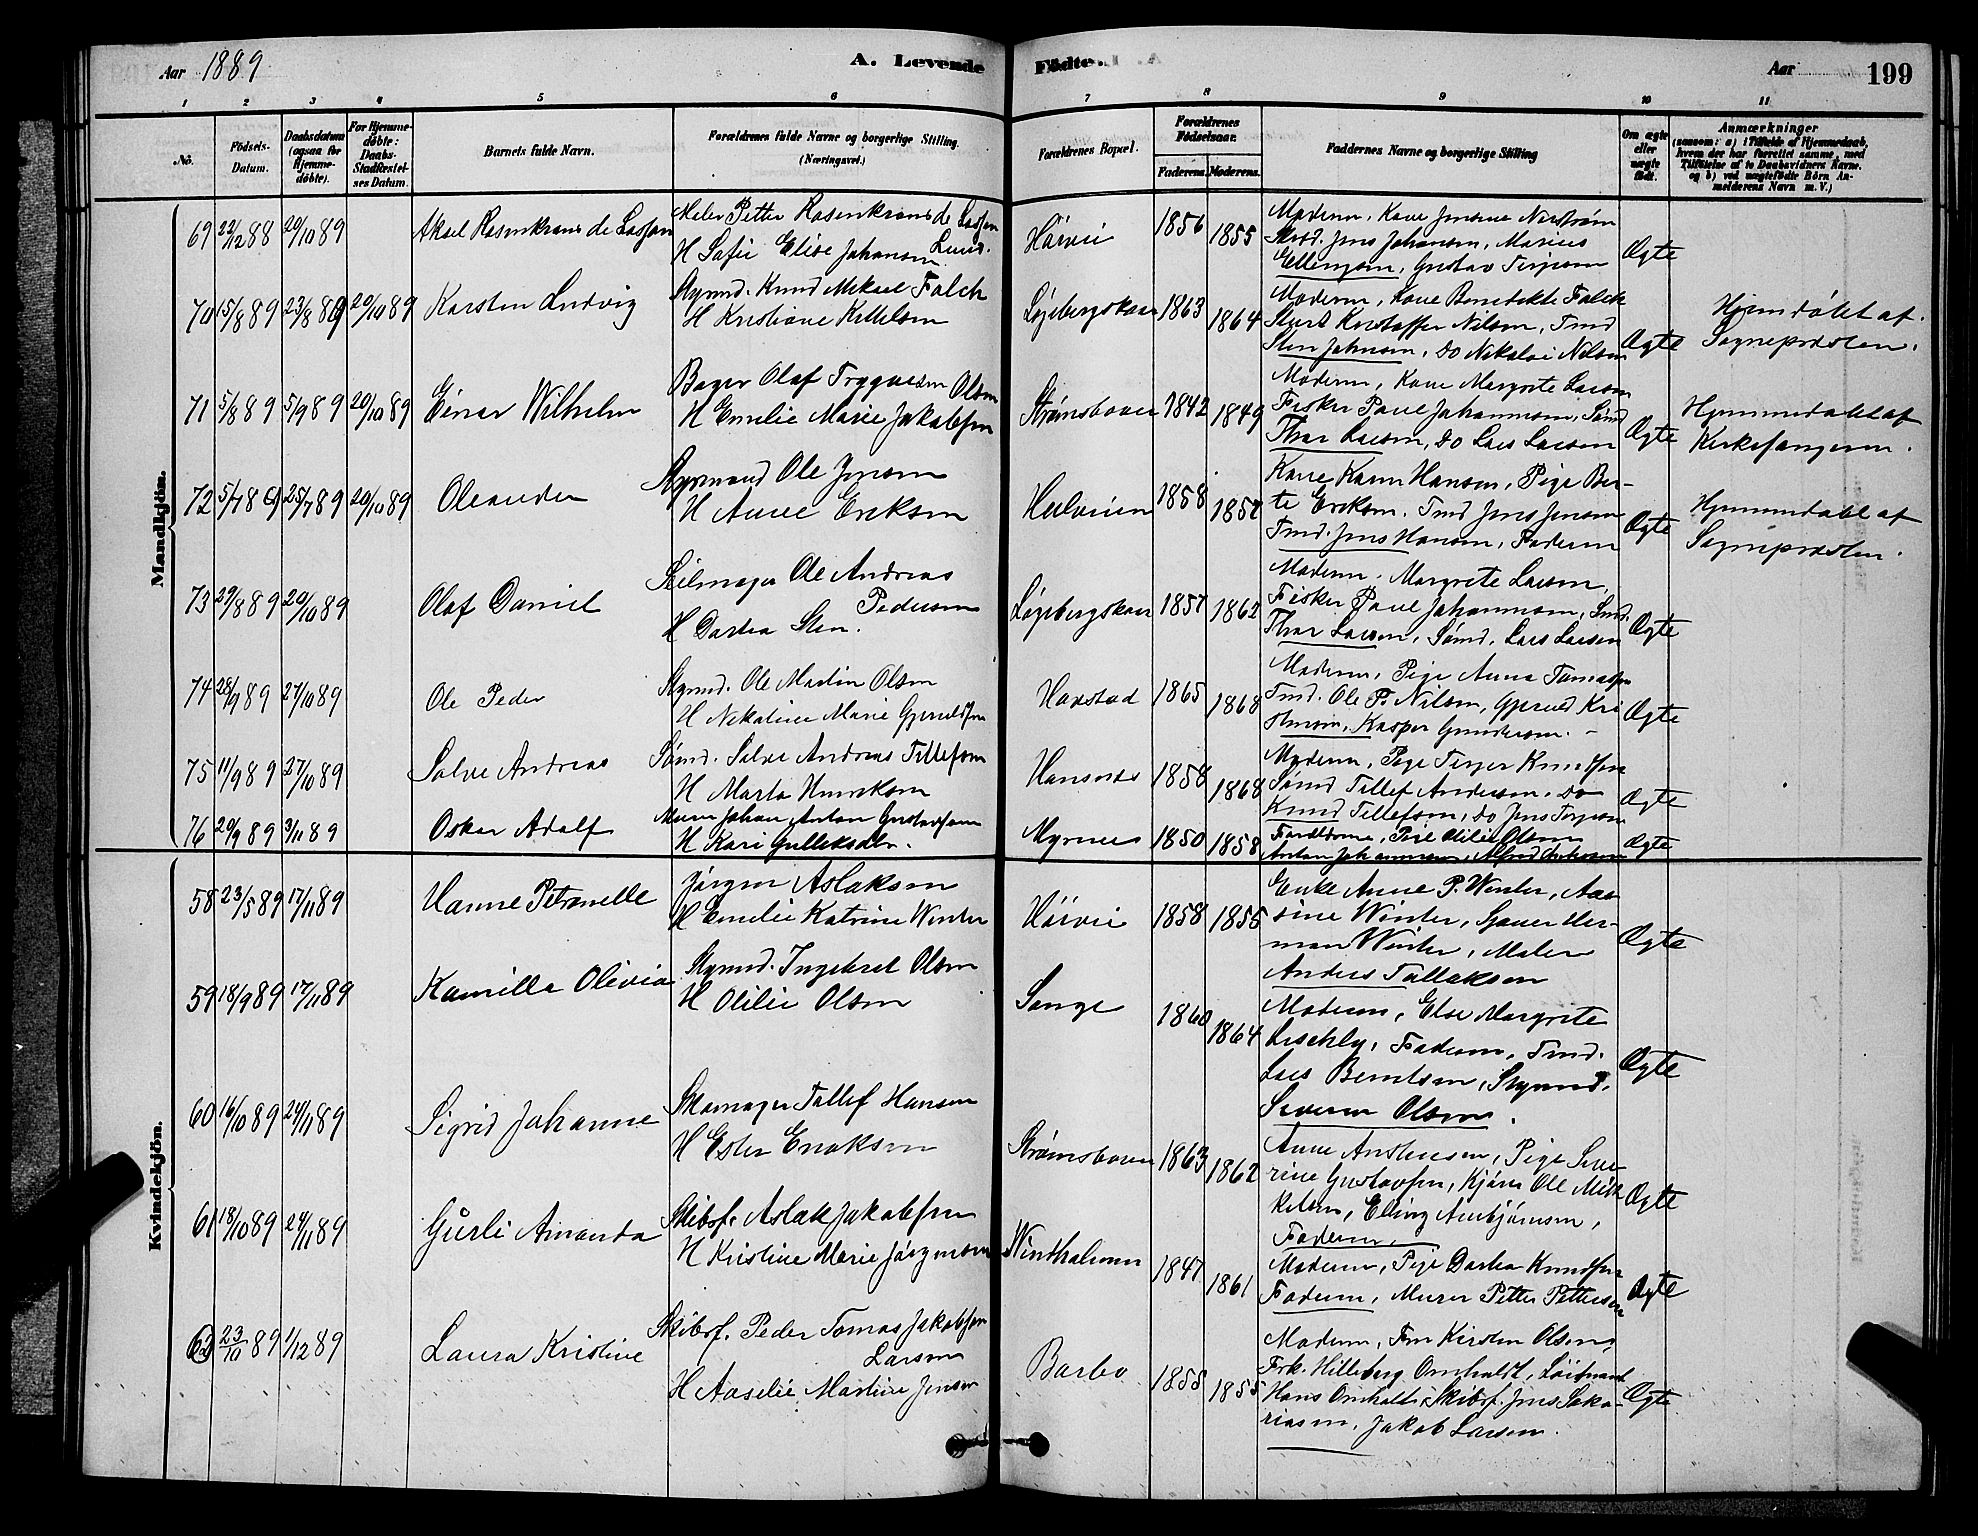 Aar 1889
A. Levende
Födte.
Aar 199
1 2 3 4 5 6 7 8 9 10 11
No.
Födsels-
Datum.
Daabsdatum
(ogsaa for
Hjemme-
döbte).
For Hjemme-
döbte:
Daabs-
Stadfæstel-
ses Datum.
Barnets fulde Navn.
Forældrenes fulde Navne og borgerlige Stilling.
(Næringsvei.)
Forældrenes Bopæl.
Forældrenes
Födselsaar.
Faderens. Moderens.
Faddernes Navne og borgerlige Stilling
Om ægte
eller
uægte
födt.
Anmærkninger
(saasom: a) i Tilfælde af Hjemmedaab,
hvem der har forrettet samme, med
Tilföielse af to Daabsvidners Navne.
og b) ved uægtefödte Börn An-
melderens Navn m. V.)
Mandkjön.
69 22/12 88 20/10 89 Aksel Rosenkrans de Lasson
Maler Petter Rosenkrans de Lasson
Lund.
H Sofie Elise Johansen
Hörvei 1856 1855
Moderen, Kone Jensine
Jens Johansen, Marius
Ellingsen, Gustav Terjesen
Ægte
70 15/8 89 23/8 89 20/10 89 Karsten Ludvig
Styrmd. Knud Mikael Falch
H Kristiane Kittelsen
Løgebergskaar 1863 1864
Moderen, Kone Benedikte Falck
Kristoffer Nilsen, Tmd
Sten Johnsen, Do Nikolai Nilsen
Ægte
Hjemdöbt af
Sognepræsten.
71 5/8 89 5/9 89 20/10 89 Einar Wilhelm
Bager Olaf Trygvesen Olsen
H Emelie Marie Jakobsen
Strømsbuen 1842 1849
Moderen, Kone Margrete Larsen
Fisker Poul Johannesen, Sømd
Thor Larsen, Do Lars Larsen
Ægte
Hjemmedøbt af
Kirkesangeren.
72 5/7 89 25/7 89 20/10 89 Oleander
Styrmand Ole Jensen
H Anne Eriksen
1858 1857
Kone Karen Hansen, Pige Ber-
te Eriksen. Tmd Jens Jensen
Tmd. Jens Hansen, Faderen
Ægte
Hjemmedøbt af
Sognepræsten.
73 29/8 89 20/10 89 Olaf Daniel
Seilmager Ole Andreas
Pedersen
H Dortea Sten.
Løgebergskaar 1857 1862
Moderen. Margrete Larsen,
Fisker Poul Johannesen, Smd.
Thor Larsen, Sømd. Lars Larsen
Ægte
74 28/9 89 27/10 89 Ole Peder
Styrmd. Ole Martin Olsen
H Nikoline Marie Gjeruldsen
Havstad 1865 1868
Moderen, Pige Anna Tomassen
Tmd. Ole P. Nilsen, Gjeruld Kri
stensen, Kasper Gundersen. -
Ægte
75 11/9 89 27/10 89 Salve Andreas
Sømd. Salve Andreas Tellefsen
H Marta Henriksen
Hansnes 1858 1868
Moderen, Pige Terjer Knudsen
Sømd Tellef Andersen. Do
Knud Tellefsen, Do Jens Terjesen
Ægte
76 20/9 89 3/11 89 Oskar Adolf
Murer Johan Anton Gustavsen
H Kari Gulleksdtr.
Myrene 1850 1858
Forældrene, Pige Olilie Olsen
Anton Johannesen, Alfred
Ægte
Kvindekjön.
58 23/5 89 17/11 89 Hanne Petronelle
Jörgen Aslaksen
H Emilie Katrine Winter
Hörvei 1858 1855
Enke Anne P. Winter, Aas
sine Winter, Her-
man Winter, Maler
Anders Tallaksen
Ægte
59 18/9 89 17/11 89 Kamilla Olivia
Styrmd. Ingebret Olsen
H Olilie Olsen
Songe 1860 1864
Moderen, Else Margrete
Faderen, Tmd.
Lars Berntsen, Styrmd.
Severin Olsen.
Ægte
60 16/10 89 24/11 89 Sigrid Johanne
Skomager Tellef Hansen
H Ester Enoksen
Strømsbuen 1863 1862
Anne Pige Seve-
rine Gustavsen, Ole Mik
kelsen, Elling Anbjørnsen,
Faderen,
Ægte
61 18/10 89 24/11 89 Gürli Amanda
Skibsf. Aslak Jakobsen
H Kristine Marie Jörgensen
Vintholmen 1847 1861
Moderen, Pige Dortea Knudsen
Faderen, Murer Petter Pettersen
Ægte
62 23/10 89 1/12 89 Laura Kristine
Skibsf. Peder Tomas Jakobsen
Larsen
H Aaselie Martine Jensen
Barbo 1855 1855
Moderen, Fru Kirsten Olsen,
Frk. Hilleborg Omholdt, Löitnant
Hans Omholdt, Skibsf. Jens Saka-
riasen, Jakob Larsen.
Ægte